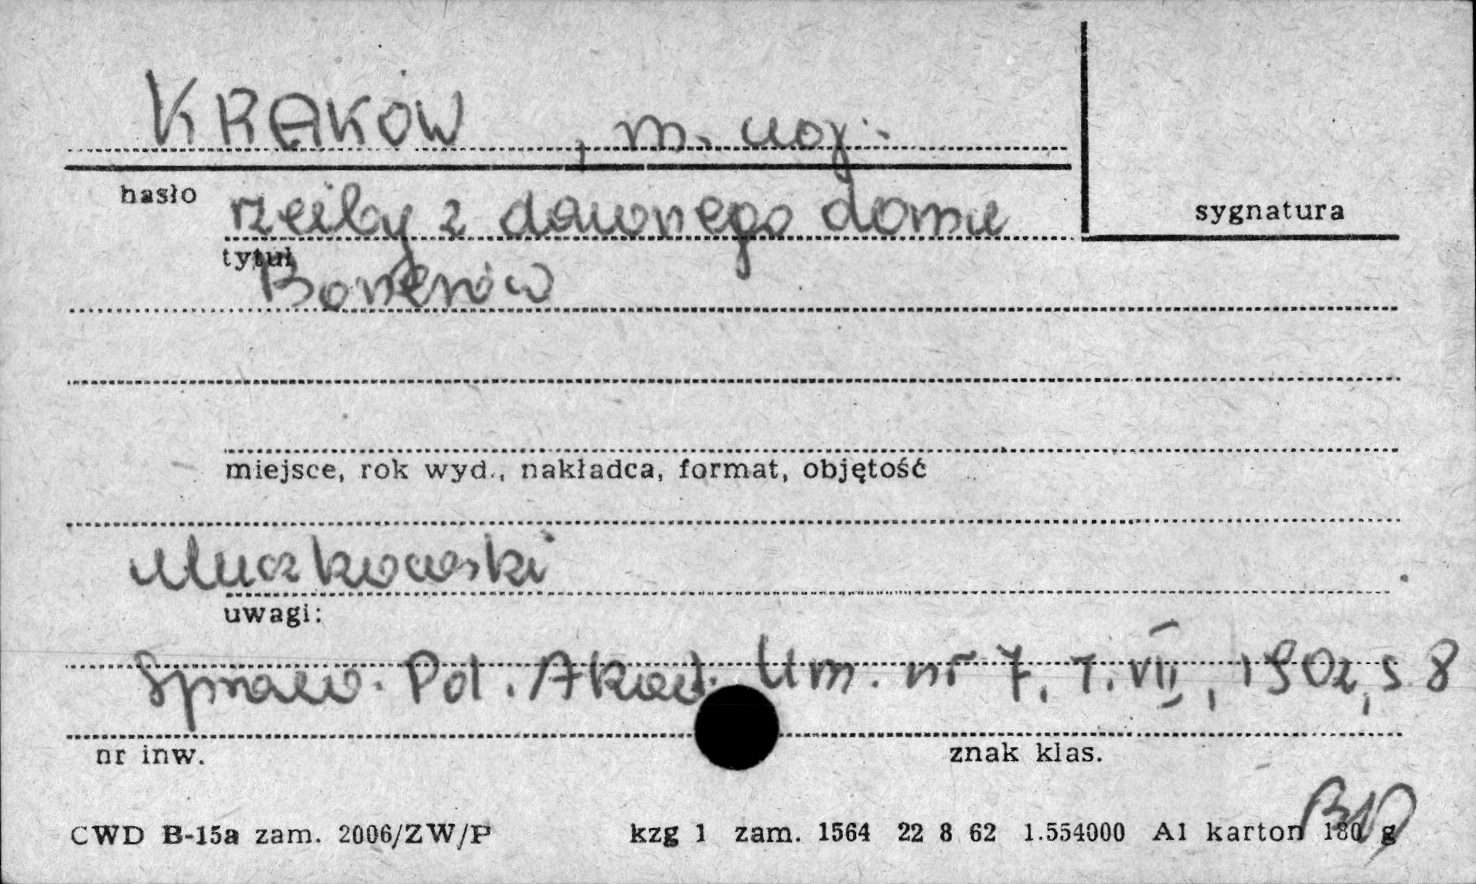 KRAKÓW , m. woj.
hasło
sygnatura
rzeźby z dawnego domu
tytuł
Bonerów
miejsce, rok wyd., nakładca, format, objętość
Muczkowski
uwagi:
Spraw. Pol. Akad. Um. nr 7. T. VII, 1902, s. 8
nr inw.
znak klas.
CWD B-15a zam. 2006/ZW/P kzg 1 zam. 1564 22 8 62 1.554000 A1 karton 180 g